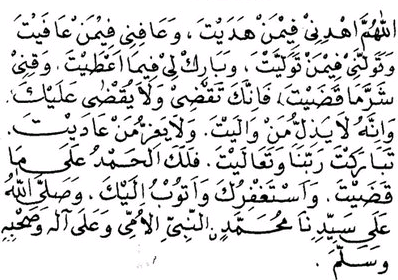 اَللّٰهُمَّ اهْدِنِيْ فِيْمَنْ هَدَيْتَ ، وَعَافِنِي فِيْمَنْ عَافَيْتَ
وَتَوَلَّنِيْ فِيْمَنْ تَوَلَّيْتَ ، وَبَارِكْ لِيْ فِيْمَا اَعْطَيْتَ ، وَقِنِيْ
شَرَّمَا قَضَيْتَ ، فَاِنَّكَ تَقْضِيْ وَلَا يُقْضٰى عَلَيْكَ .
وَاِنَّهُ لَا يَذِلُّ مَنْ وَالَيْتَ . وَلَا يَعِزُّ مَنْ عَادَيْتَ .
تَبَارَكْتَ رَبَّنَا وَتَعَالَيْتَ . فَلَكَ الْحَمْدُ عَلٰى مَا
قَضَيْتَ . وَاَسْتَغْفِرُكَ وَاَتُوْبُ اِلَيْكَ . وَصَلَّى اللّٰهُ
عَلٰى سَيِّدِنَا مُحَمَّدٍ النَّبِيِّ الْاُمِّيِّ وَعَلٰى آلِهِ وَصَحْبِهِ
وَسَلَّمَ .